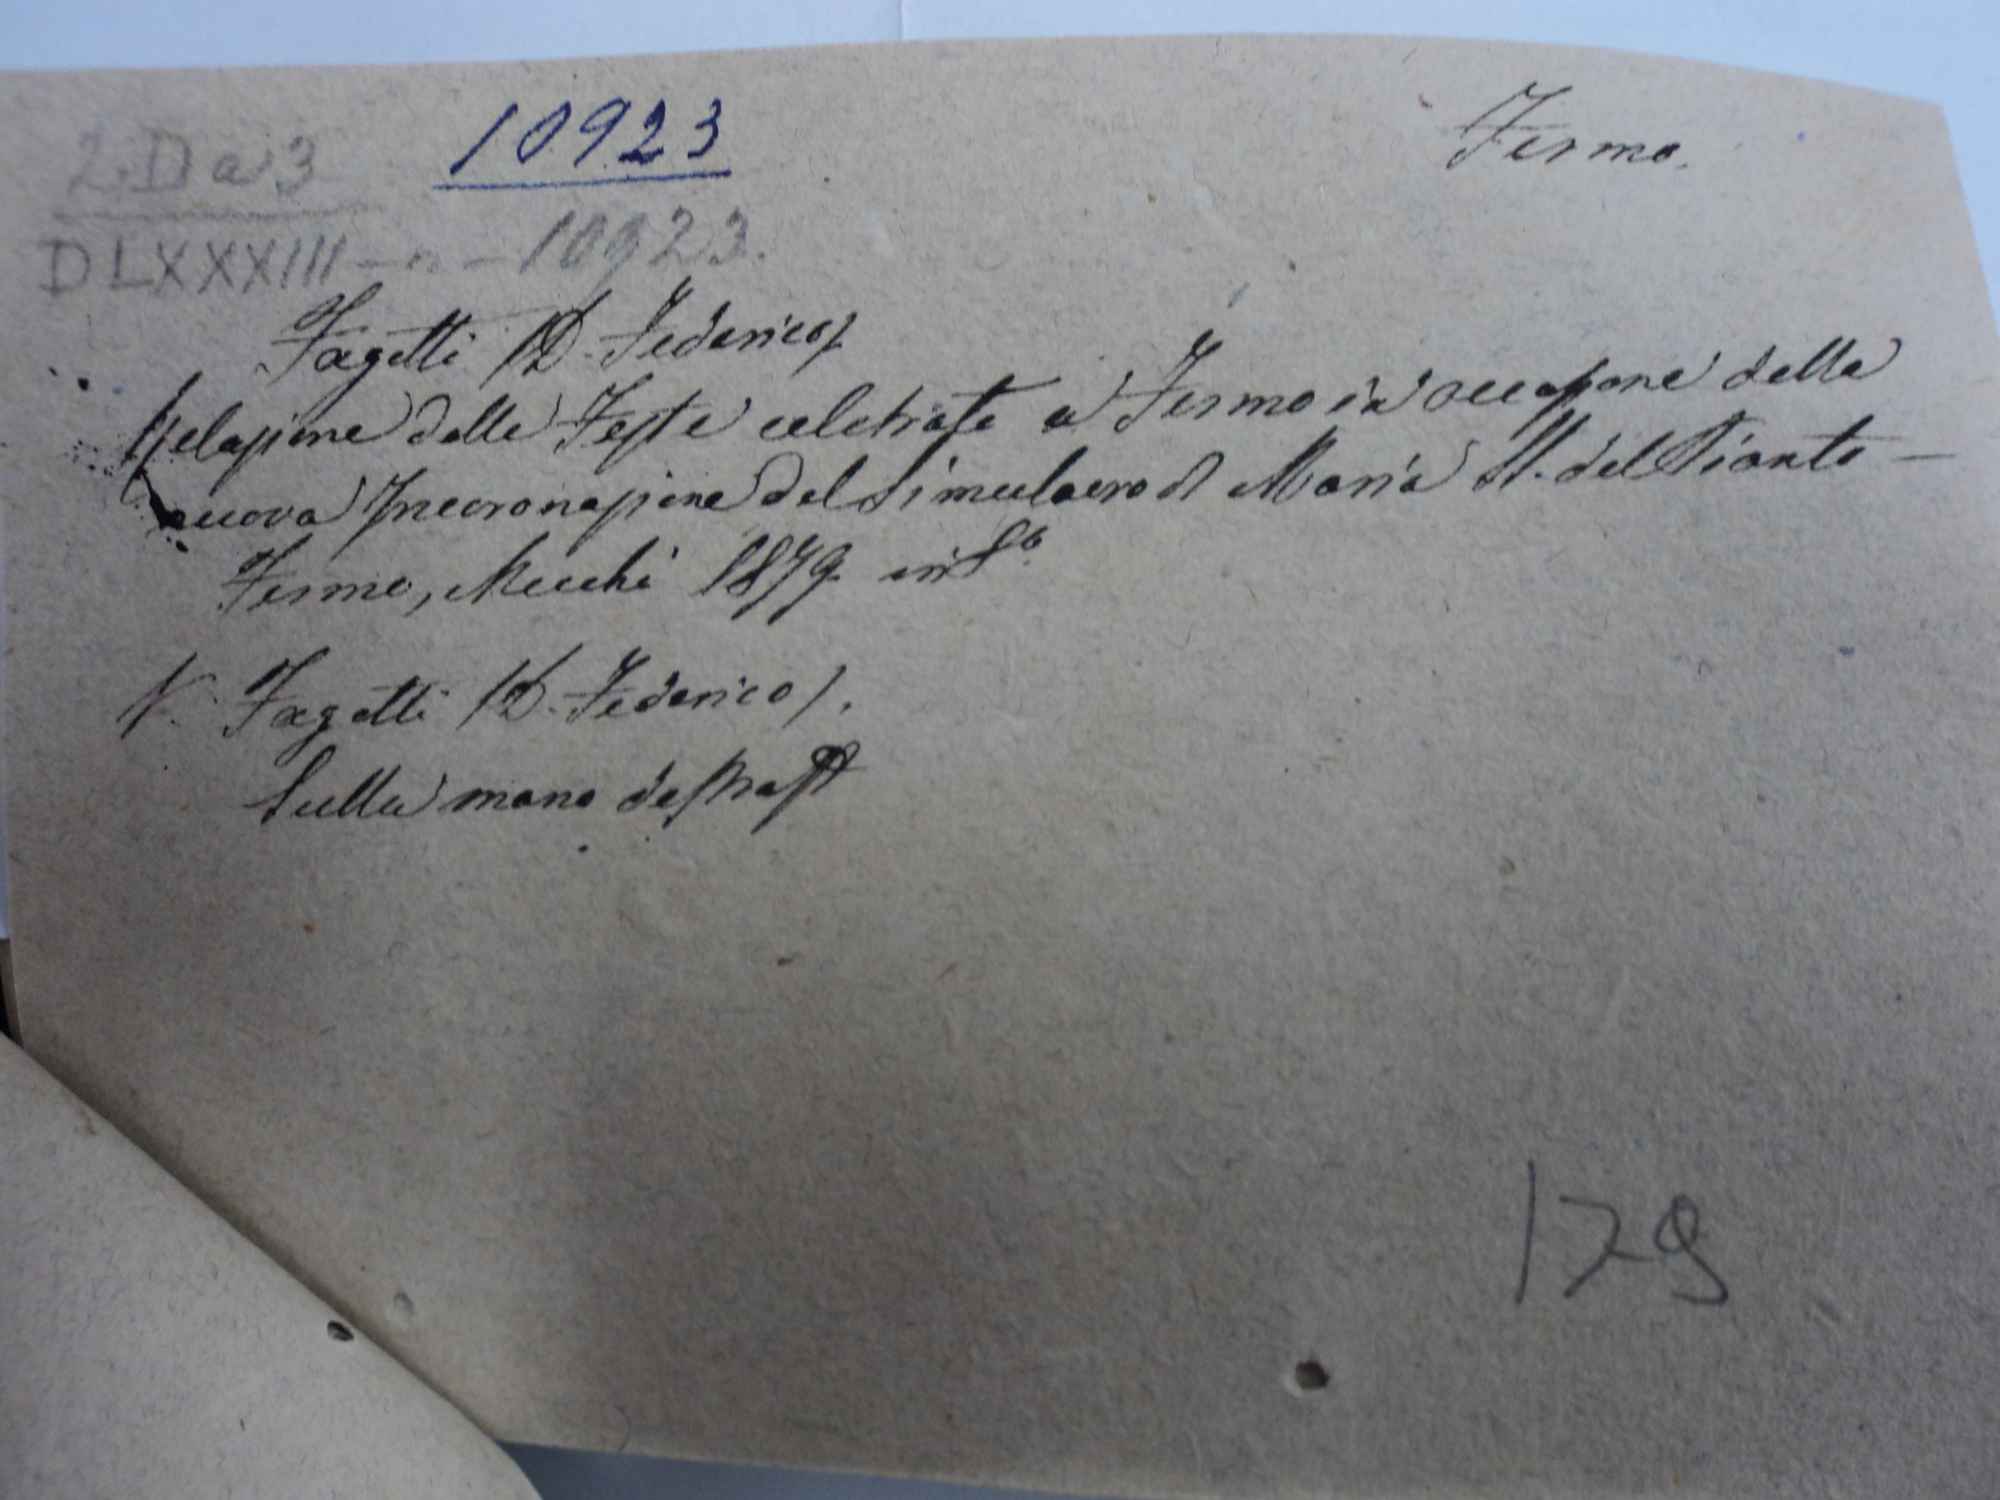 2 D a 3
10923
Fermo.
DLXXXIII - n - 10923.
Fagetti (D. Federico)
Relazione delle Feste celebrate a Fermo in occasione della
nuova Incoronazione del Simulacro di Maria SS. del Pianto —
Fermo, Mecchi 1879. in 8º.
V. Fagotti (D. Federico).
Sulla mano destra
179